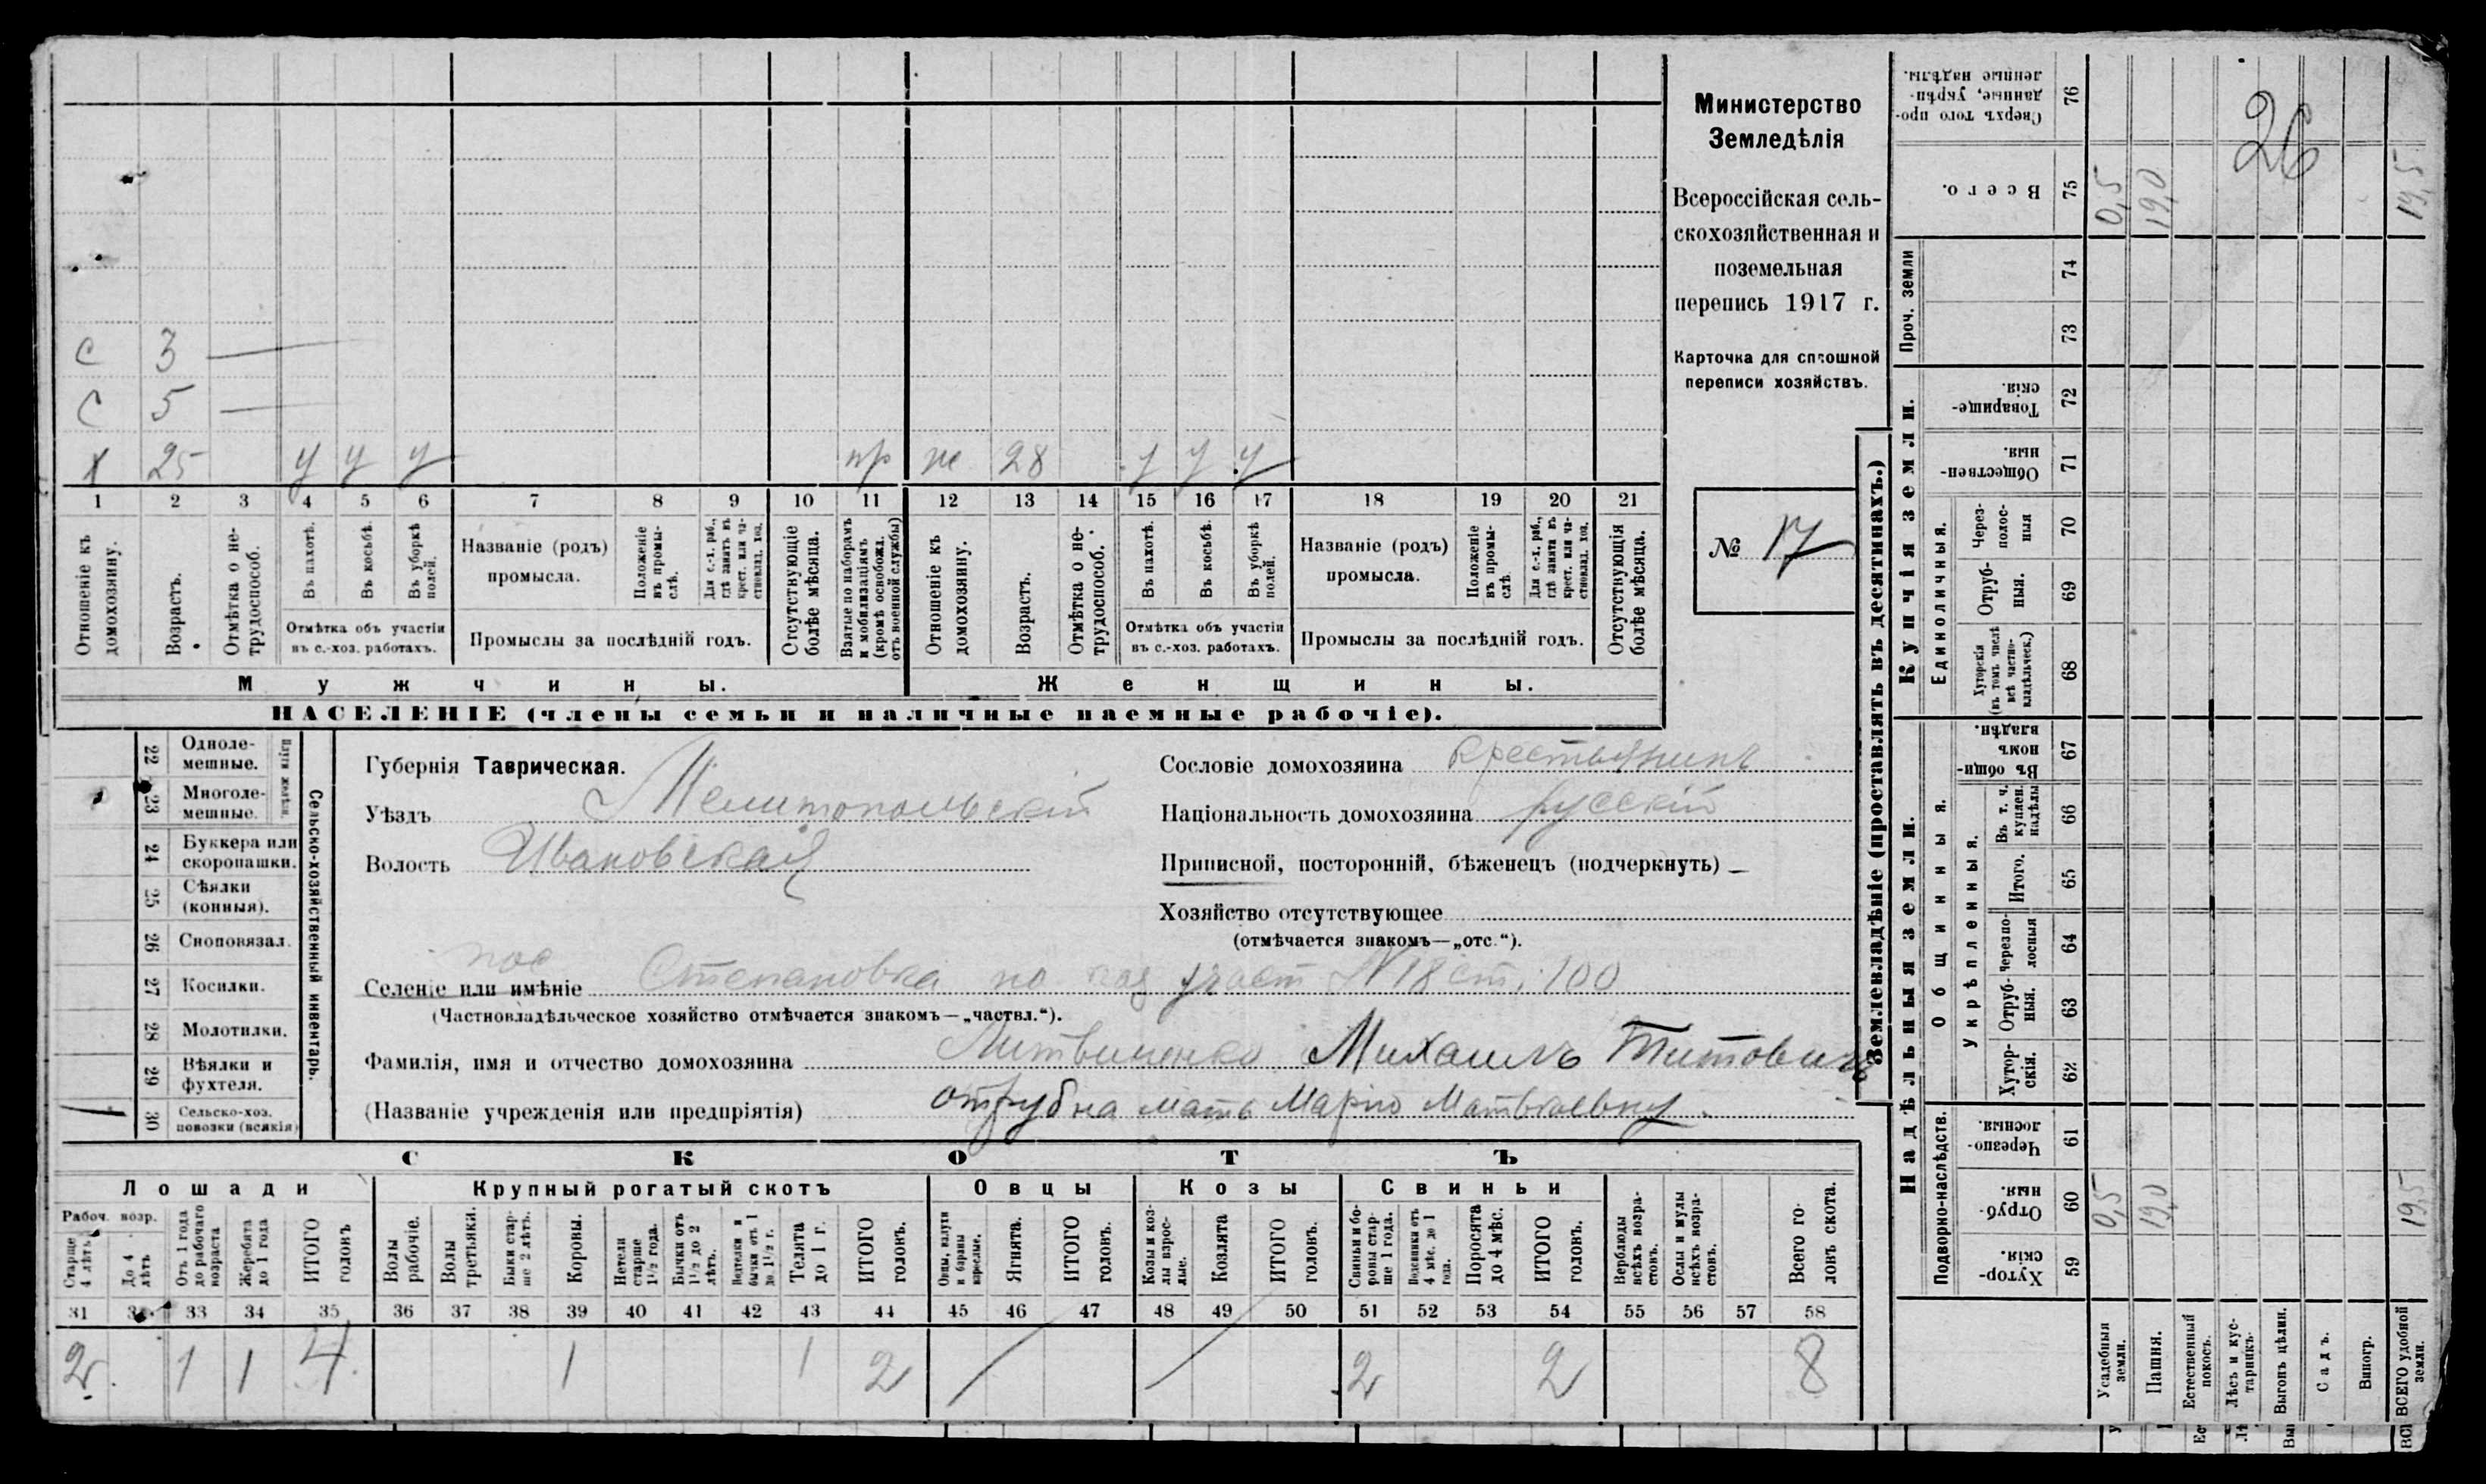 Министерство
Земледѣлія
Всероссійская сель-
скохозяйственная и
поземельная
перепись 1917 г.
Карточка для сплошной
переписи хозяйствъ.
№ 17
26
с 3
с 5
х 25 у у у пр ж 28 у у у
1 2 3 4 5 6 7 8 9 10 11 12 13 14 15 16 17 18 19 20 21
Отношеніе къ домохозяину.
Возрастъ.
Отмѣтка о не-трудоспособ.
Въ пахотѣ.
Въ косьбѣ.
Въ уборкѣ полей.
Отмѣтка объ участіи
въ с.-хоз. работахъ.
Названіе (родъ)
промысла.
Положеніе въ промы-слѣ.
Для с.-х. раб., гдѣ занятъ въ крест. или ча-стновлад. хоз.
Промыслы за послѣдній годъ.
Отсутствующіе болѣе мѣсяца.
Взятые по наборамъ и мобилизаціямъ (кромѣ освобожд. отъ военной службы)
Отношеніе къ домохозяину.
Возрастъ.
Отмѣтка о не-трудоспособ.
Въ пахотѣ.
Въ косьбѣ.
Въ уборкѣ полей.
Отмѣтка объ участіи
въ с.-хоз. работахъ.
Названіе (родъ)
промысла.
Положеніе въ промы-слѣ.
Для с.-х. раб., гдѣ занята въ крест. или ча-стновлад. хоз.
Промыслы за послѣдній годъ.
Отсутствующія болѣе мѣсяца.
Мужчины. Женщины.
НАСЕЛЕНІЕ (члены семьи и наличные наемные рабочіе).
Сельско-хозяйственный инвентарь.
22 Одноле-мешные.
23 Многоле-мешные.
24 Буккера или скоропашки.
25 Сѣялки (конныя).
26 Сноповязал.
27 Косилки.
28 Молотилки.
29 Вѣялки и фухтеля.
30 Сельско-хоз. повозки (всякія)
Губернія Таврическая.
Уѣздъ Мелитопольскій
Волость Ивановская
Сословіе домохозяина крестьянинъ
Національность домохозяина русскій
Приписной, посторонній, бѣженецъ (подчеркнуть)
Хозяйство отсутствующее
(отмѣчается знакомъ—„отс.“).
пос
Селеніе или имѣніе Степановка по каз участ N 18 ст. 100
(Частновладѣльческое хозяйство отмѣчается знакомъ—„частвл.“).
Фамилія, имя и отчество домохозяина Литвиненко Михаилъ Титовичъ
(Названіе учрежденія или предпріятія) отруб на мать Марію Матвѣевну.
СКОТЪ
Лошади Крупный рогатый скотъ Овцы Козы Свиньи
Рабоч. возр.
Старше 4 лѣтъ
До 4 лѣтъ
Отъ 1 года до рабочаго возраста
Жеребята до 1 года
ИТОГО головъ
Волы рабочіе.
Волы третьяки.
Быки стар-ше 2 лѣтъ.
Коровы.
Нетели старше 1½ года.
Бычки отъ 1½ до 2 лѣтъ.
Нетелки и бычки отъ 1 до 1½ г.
Телята до 1 г.
ИТОГО головъ.
Овцы, валухи и бараны взрослые.
Ягнята.
ИТОГО головъ.
Козы и коз-лы взрос-лые.
Козлята
ИТОГО головъ.
Свиньи и бо-ровы стар-ше 1 года.
Подсвинки отъ 4 мѣс. до 1 года.
Поросята до 4 мѣс.
ИТОГО головъ.
Верблюды всѣхъ возра-стовъ.
Ослы и мулы всѣхъ возра-стовъ.
Всего го-ловъ скота.
31 32 33 34 35 36 37 38 39 40 41 42 43 44 45 46 47 48 49 50 51 52 53 54 55 56 57 58
2 1 1 4 1 1 2 2 2 8
Землевладѣніе (проставлять въ десятинахъ.)
Надѣльныя земли. Купчія земли. Проч. земли
Подворно-наслѣдств.
Общинныя.
Укрѣпленныя.
Единоличныя.
59 Хутор-скія
60 Отруб-ныя.
61 Черезпо-лосныя.
62 Хутор-скія.
63 Отруб-ныя.
64 Черезпо-лосныя
65 Итого.
66 Въ т. ч. куплен. надѣлы
67 Въ общи-номъ владѣн.
68 Хуторскія (въ томъ числѣ всѣ частно-владѣльческ.)
69 Отруб-ныя.
70 Через-полос-ныя
71 Обществен-ныя.
72 Товарище-скія.
73
74
75 Всего.
76 Сверхъ того про-данные, укрѣп-ленные надѣлы.
Усадебныя земли. 0,5 0,5
Пашня. 19,0 19,0
Естественный покосъ.
Лѣсъ и кус-тарникъ.
Выгонъ цѣлин.
Садъ.
Виногр.
ВСЕГО удобной земли. 19,5 19,5